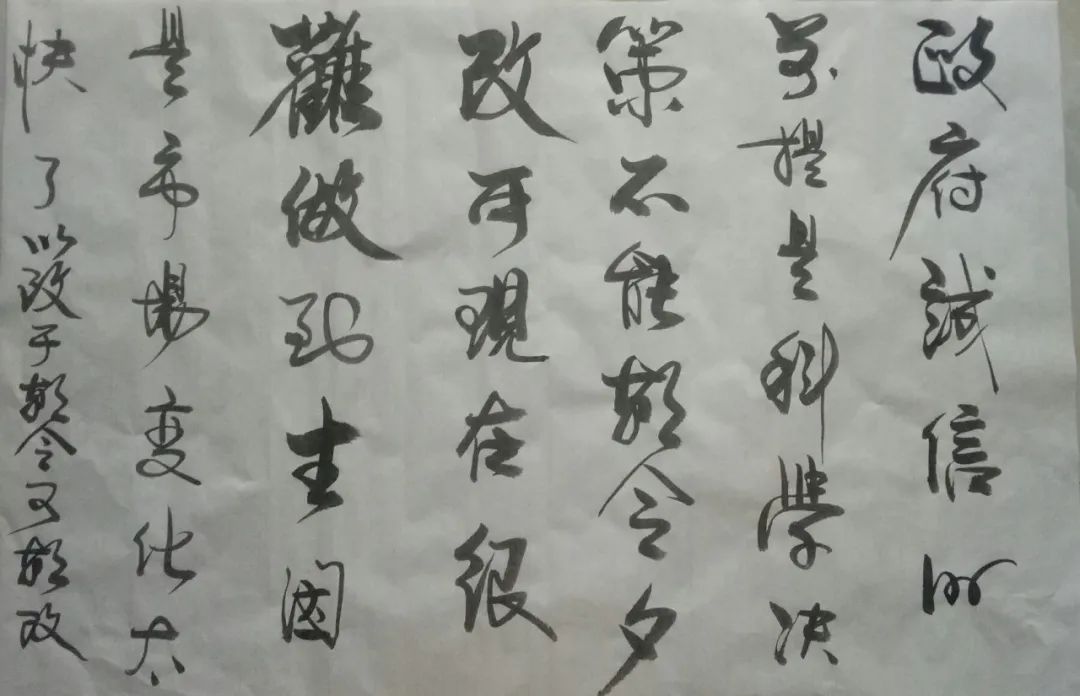 政府誠信的
前提是科學决
策不能朝令夕
改可現在很
難做到主因
是市場变化太
快了以致于朝令又朝改